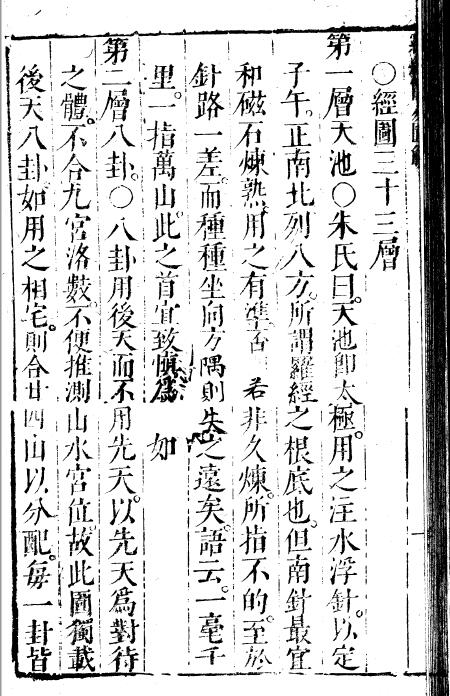 ○經圖三十三層
第一層天池○朱氏曰。天池卽太極。用之注水浮針。以定
子午。正南北列八方。所謂羅經之根底也。但南針最宜
和磁石煉熟。用之有準否　若非久煉。所指不的。至於
針路一差。而種種坐向方隅則失之遠矣。語云。一毫千
里。一指萬山。此之首宜致慎爲　如
第二層八卦。○八卦用後天而不用先天。以先天爲對待
之體。不合九宮洛數。不便推測山水宮位。故此圖獨載
後天八卦。如用之相宅。則合廿四山以分配。每一卦皆